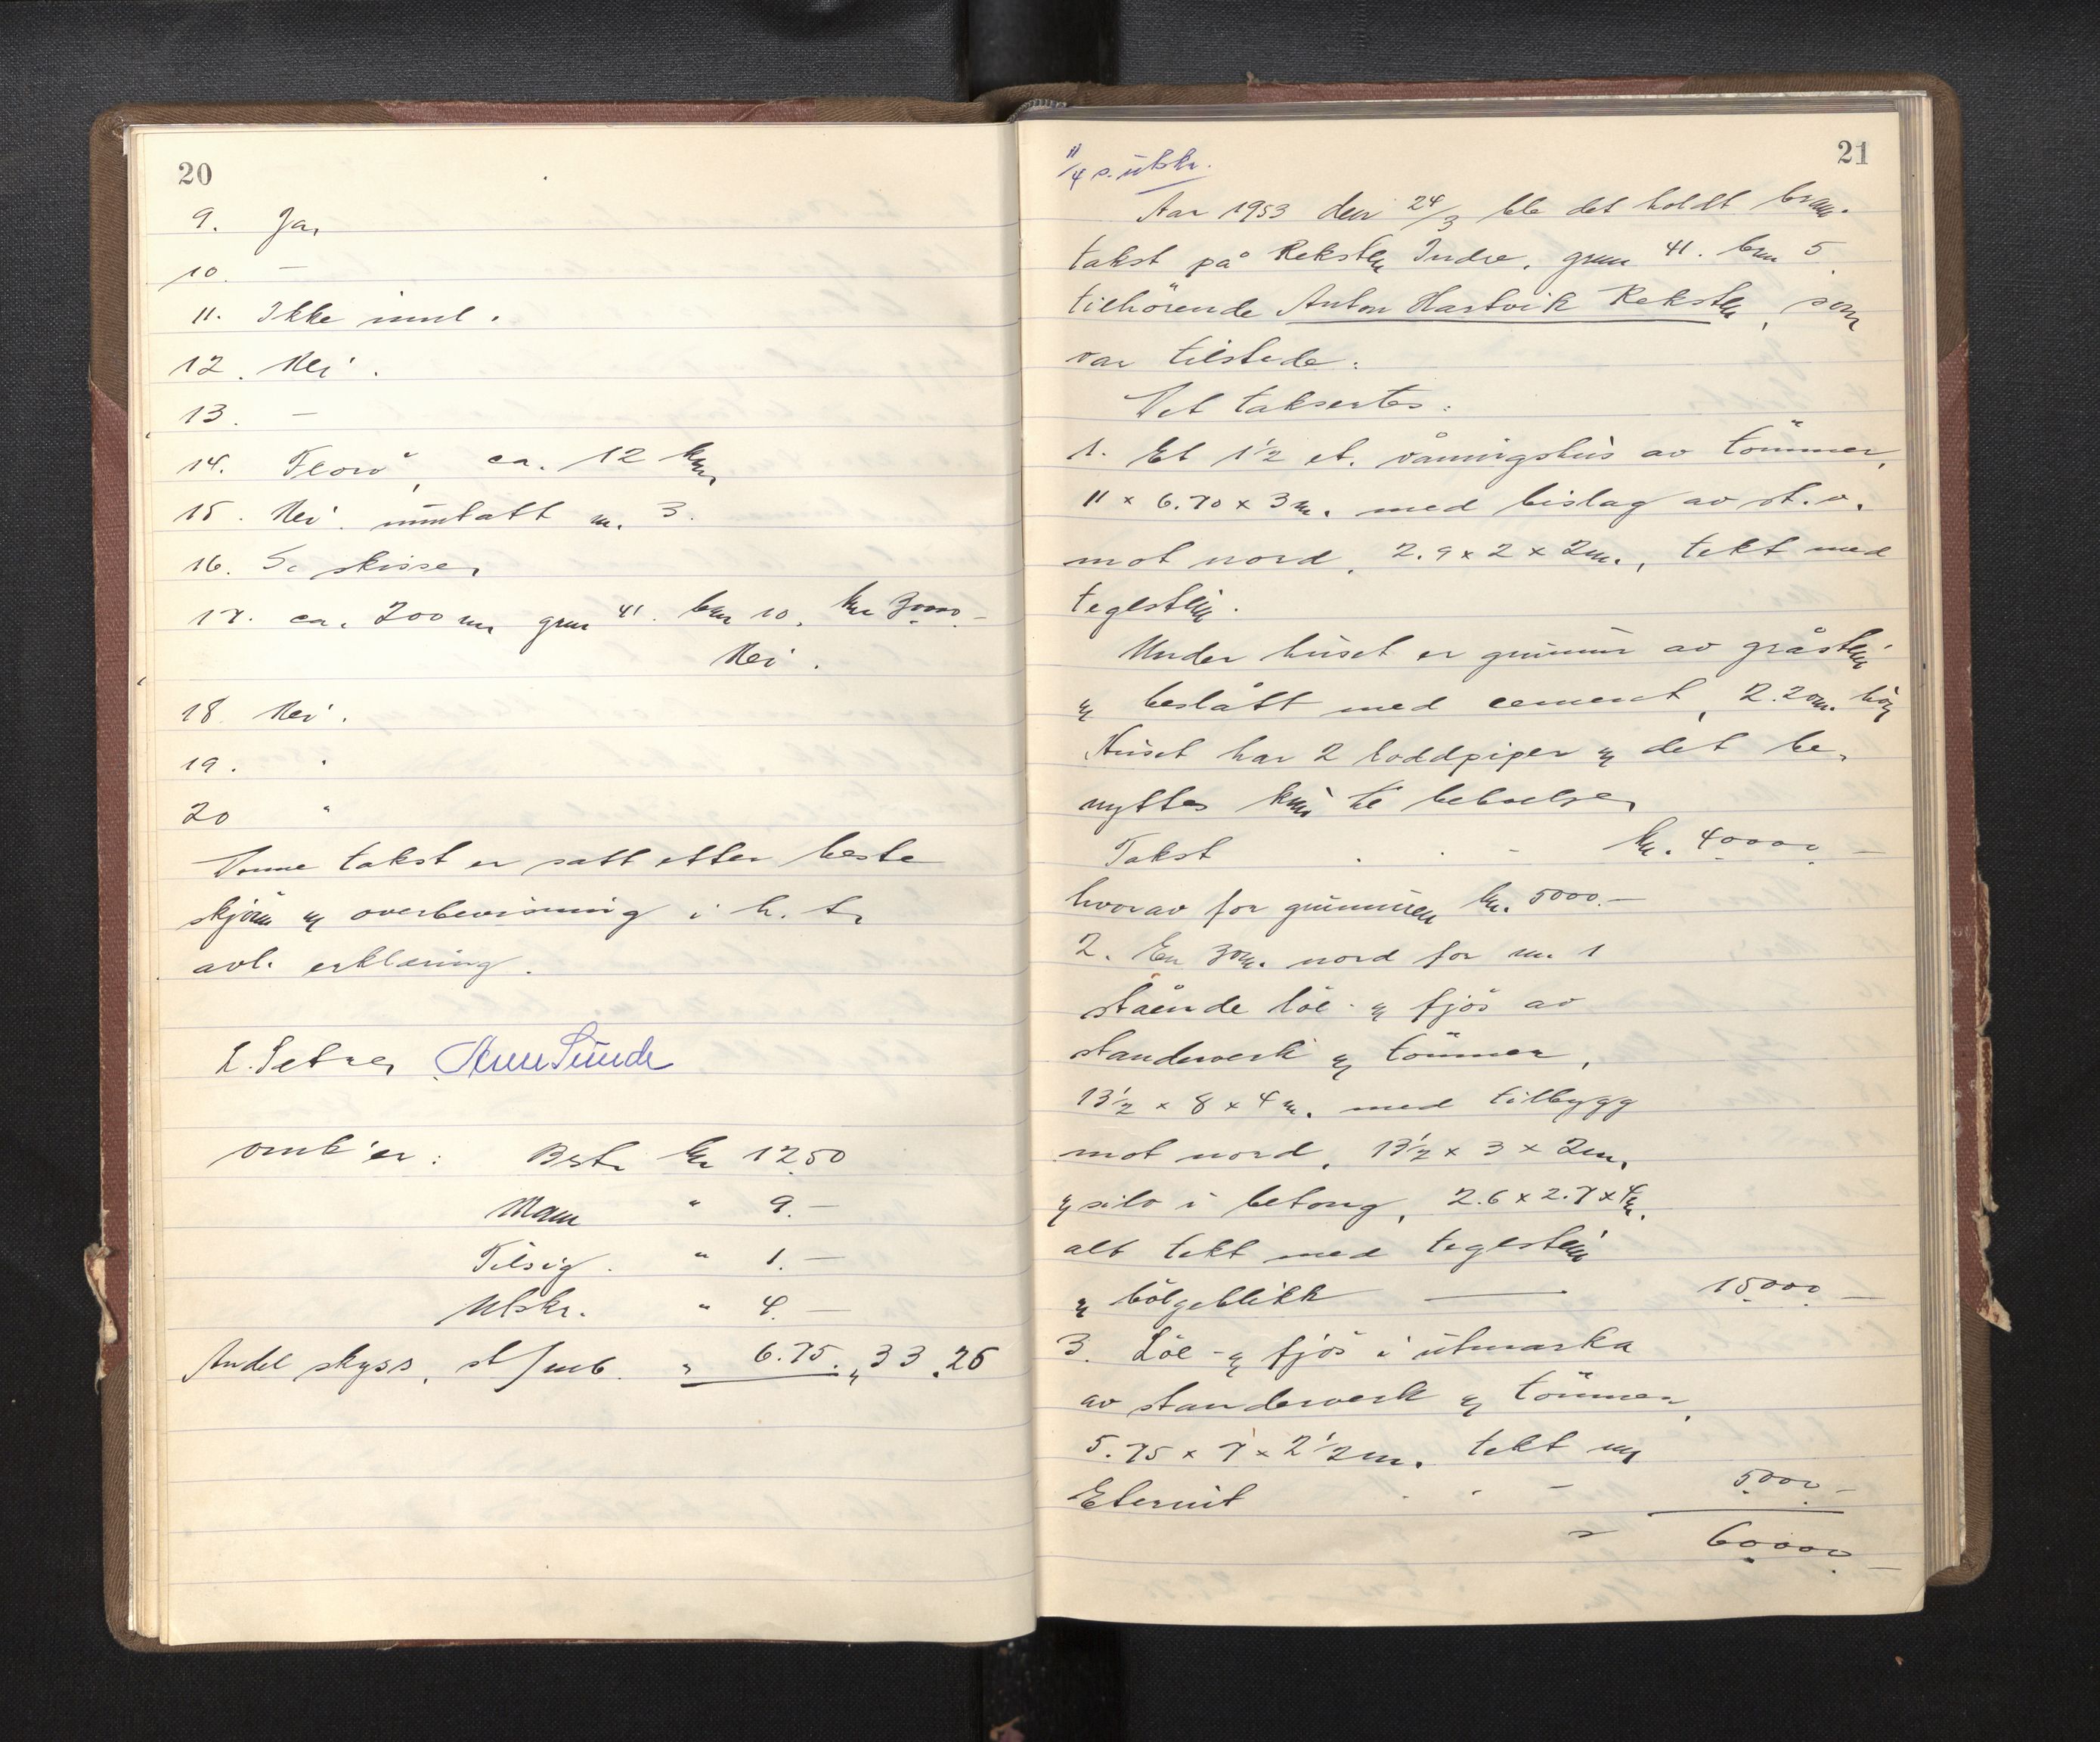 20
9. Ja.
10. —
11. Ikke innl.
12. Nei.
13. —
14. Florø, ca. 12 km.
15. Nei. unntatt nr. 3.
16. Se skisse.
17. ca. 200 m. gnr 41. bnr 10. kr 30000.—
Nei.
18. Nei.
19. "
20 "
Denne takst er satt etter beste
skjönn og overbevisning i h. t.
avl. erklæring.
L. Setre. Arne Sunde
omk'er: Best. kr 12.50
Mann " 9.—
Tilsig. " 1.—
Utskr. " 4.—
Andel skyss, st/mb. " 6.75. " 33.25
21
11/4 s. utskr.
Aar 1953 den 24/3 ble det holdt brann-
takst på Reksten Indre, gnr 41. bnr 5,
tilhörende Anton Hartvik Reksten, som
var tilstede.
Det taksertes:
1. Et 1½ et. våningshus av tömmer,
11 x 6.70 x 3 m. med bislag av st.v.
mot nord, 2.9 x 2 x 2 m., tekt med
teglstein.
Under huset er grunnmur av gråstein
og beslått med cement, 2.20 m. høg
Huset har 2 loddpiper og det be-
nyttes kun til beboelse.
Takst . . - kr. 40000.—
hvorav for grunnmuren kr. 5000.—
2. En 30 m. nord for nr. 1
stående löe- og fjös av
standerverk og tömmer,
13½ x 8 x 4 m. med tilbygg
mot nord, 13½ x 3 x 2 m.
og silo i betong, 2.6 x 2.7 x 4 m.
alt tekt med teglstein
og bölgeblikk — 15000.—
3. Löe- og fjös i utmarka
av standerverk og tömmer,
5.75 x 7 x 2½ m. tekt m/
Eternit . . - 5000.—
" 60000.—